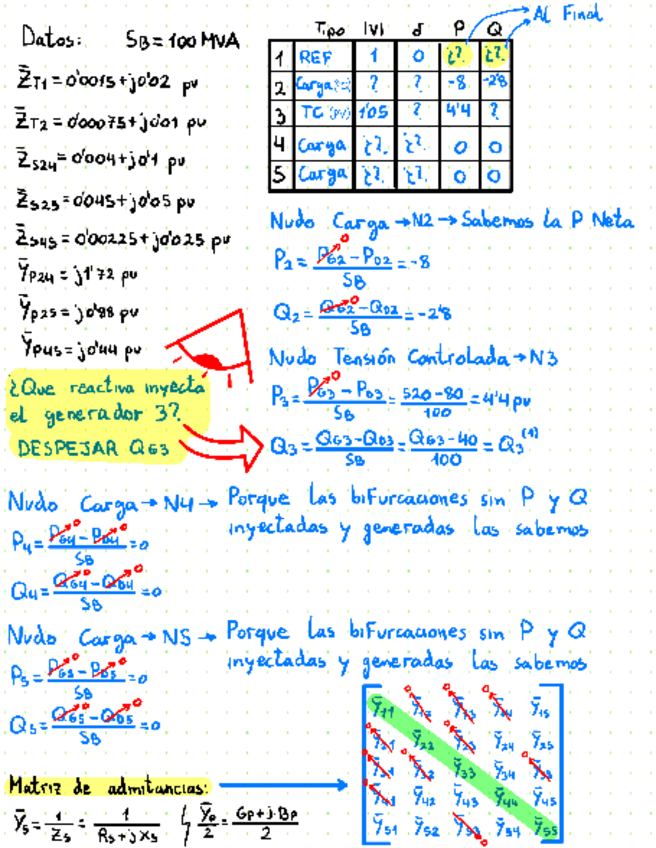 Datos: SB = 100 MVA
Z̄T1 = 0'0015 + j0'02 pu
Z̄T2 = 0'00075 + j0'01 pu
Z̄S24 = 0'009 + j0'1 pu
Z̄S25 = 0'045 + j0'05 pu
Z̄S45 = 0'00225 + j0'025 pu
ȲP24 = j1'72 pu
ȲP25 = j0'88 pu
ȲP45 = j0'44 pu
¿Que reactiva inyecta
el generador 3?
DESPEJAR QG3
Al Final
Tipo |V| δ P Q
1 REF 1 0 ¿? ¿?
2 Carga ? ? -8 -2'8
3 TC 1'05 ? 4'4 ?
4 Carga ¿? ¿? 0 0
5 Carga ¿? ¿? 0 0
Nudo Carga → N2 → Sabemos la P Neta
P2 = (PG2 - PD2)/SB = -8
Q2 = (QG2 - QD2)/SB = -2'8
Nudo Tensión Controlada → N3
P3 = (PG3 - PD3)/SB = (520 - 80)/100 = 4'4 pu
Q3 = (QG3 - QD3)/SB = (QG3 - 40)/100 = Q3 (1)
Nudo Carga → N4 → Porque las bifurcaciones sin P y Q
inyectadas y generadas las sabemos
P4 = (PG4 - PD4)/SB = 0
Q4 = (QG4 - QD4)/SB = 0
Nudo Carga → N5 → Porque las bifurcaciones sin P y Q
inyectadas y generadas las sabemos
P5 = (PG5 - PD5)/SB = 0
Q5 = (QG5 - QD5)/SB = 0
Matriz de admitancias:
ȲS = 1/ZS = 1/(RS + jXS) ȲP/2 = (GP + j·BP)/2
Ȳ11 Ȳ12 Ȳ13 Ȳ14 Ȳ15
Ȳ21 Ȳ22 Ȳ23 Ȳ24 Ȳ25
Ȳ31 Ȳ32 Ȳ33 Ȳ34 Ȳ35
Ȳ41 Ȳ42 Ȳ43 Ȳ44 Ȳ45
Ȳ51 Ȳ52 Ȳ53 Ȳ54 Ȳ55